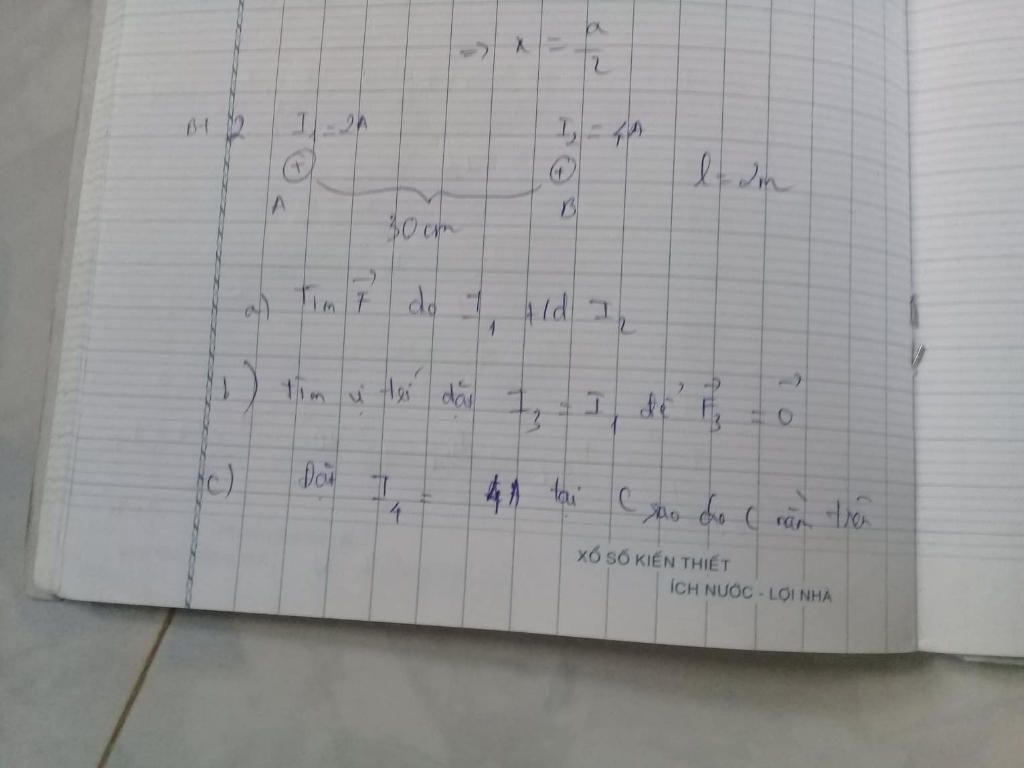 => x = a/2
BT 2 I₁ = 2A I₂ = 4A
⊕ ⊕ l = 2m
A B
30 cm
a) Tìm F⃗ do I₁ t/d I₂
b) Tìm vị trí đặt I₃ = I₁ để F⃗₃ = 0⃗
c) Đặt I₄ = tại C sao cho C nằm trên
XỔ SỐ KIẾN THIẾT
ÍCH NƯỚC - LỢI NHÀ